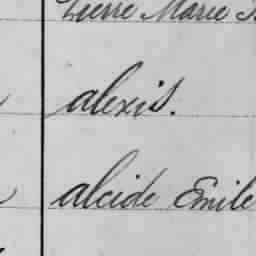 Pierre Marie
alexis.
alcide Emile